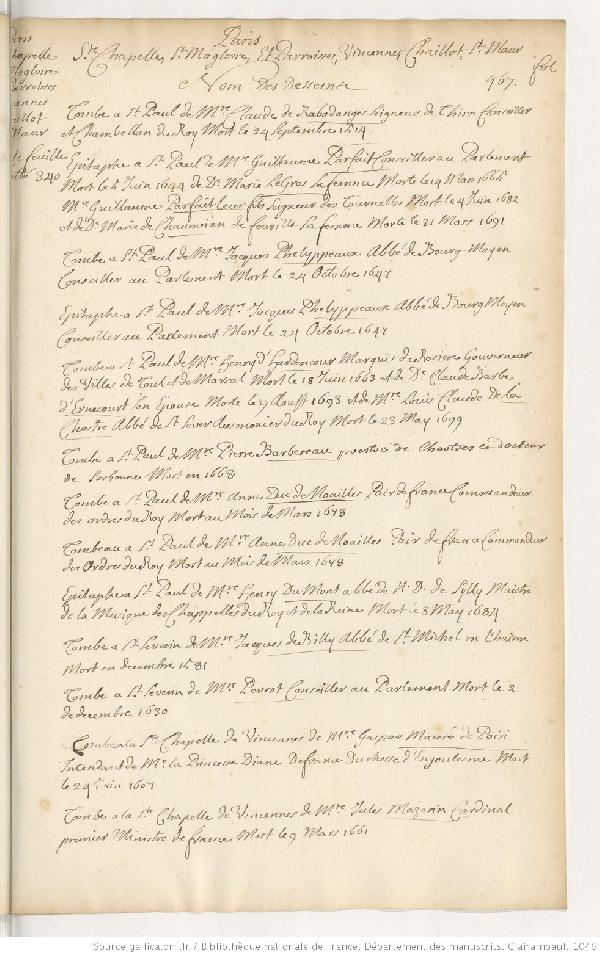 Paris
Ste Chapelle, St Magloire, Et Parroisses, Vincennes, Chaillot, St Maur
e Nom Des Desseins
967.
fol
Tombe a St Paul de Mre Claude de Rabodanges Seigneur de Thirn Conseiller
et Chambellan du Roy Mort le 24 Septembre 1514.
Epitaphe a St Paul de Mre Guillaume Parfait Conseiller au Parlement
Mort le Juin 1644 de De Marie LeGros sa femme Morte le 14 Mars 1665
Mre Guillaume Parfait leur fils Seigneur des Tournelles Mort le 4 Juin 1682
et de De Marie de Chaumejan de fourille sa femme Morte le 31 Mars 1691
Tombe a St Paul de Mre Jacques Phelyppeaux Abbé de Bourg-Moyen
Conseiller au Parlement Mort le 24 Octobre 1647
Epitaphe a St Paul de Mre Jacques Phelyppeaux Abbé de Bourg Moyen
Conseiller au Parlement Mort le 24 Octobre 1647
Tombe a St Paul de Mre Henry d'Hardncour Marquis de Rosiere Gouverneur
des Villes de Toul et de Marsal Mort le 18 Juin 1663 et de De Claude Barbe
d'Ernecourt son Epouse Morte le Aoust 1693 et de Mre Louis Claude de la
Chastre Abbé de St Aumosnier du Roy Mort le 23 May 1699
Tombe a St Paul de Mre Pierre Barbereau de Chartres et docteur
de Sorbonne Mort en 1668
Tombe a St Paul de Mre Anne Duc de Noailles Pair de france Commandeur
des ordres du Roy Mort au Mois de Mars 1678
Tombeau a St Paul de Mre Anne Duc de Noailles Pair de france Commandeur
des Ordres du Roy Mort au Mois de Mars 1678
Epitaphe a St Paul de Mre Henry Du Mont abbé de N. D. de Silly Maistre
de la Musique des Chappelles du Roy et de la Reine Mort le 8 May 1684
Tombe a St Severin de Mre Jacques de Billy Abbé de St Michel en l'hairm
Mort en decembre 1581
Tombe a St Severin de Mre Perrot Conseiller au Parlement Mort le 2
de decembre 1630
Tombe a la Ste Chapelle de Vincennes de Mre Gaspar de
Intendant de Me la Princesse Diane de france Duchesse d'Engoulesme Mort
le 24 Juin 1607
Tombe a la Ste Chapelle de Vincennes de Mre Jules Mazarin Cardinal
premier Ministre de france Mort le 9 Mars 1661
Source gallica.bnf.fr / Bibliothèque nationale de France. Département des manuscrits. Clairambault 1046